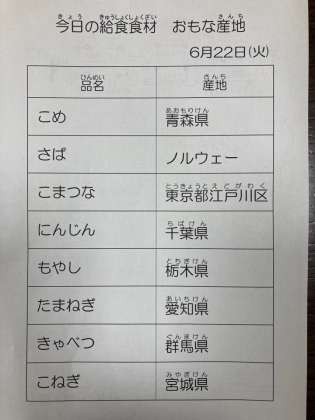 今日の給食食材　おもな産地
6月22日(火)
品名　産地
こめ　青森県
さば　ノルウェー
こまつな　東京都江戸川区
にんじん　千葉県
もやし　栃木県
たまねぎ　愛知県
きゃべつ　群馬県
こねぎ　宮城県